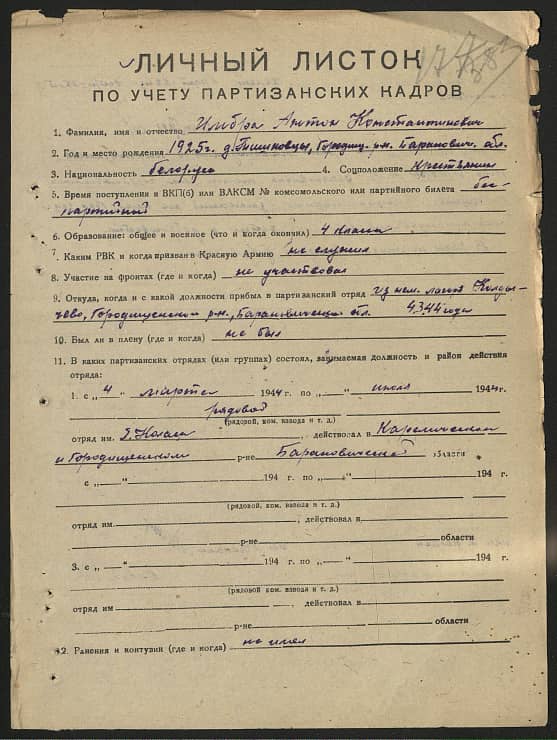 ЛИЧНЫЙ ЛИСТОК
ПО УЧЕТУ ПАРТИЗАНСКИХ КАДРОВ
1. Фамилия, имя и отчество Антон Константинович
2. Год и место рождения 1925г. д. Тишковцы, Городищ. р-н. Баранович. обл.
3. Национальность белорус 4. Соцположение крестьянин
5. Время поступления в ВКП(б) или ВЛКСМ № комсомольского или партийного билета бес-
партийный
6. Образование: общее и военное (что и когда окончил) 4 класса
7. Каким РВК и когда призван в Красную Армию не служил
8. Участие на фронтах (где и когда) не участвовал
9. Откуда, когда и с какой должности прибыл в партизанский отряд из нем. лагеря Колды-
чево, Городищенский р-н, Барановичской обл. 4.3.44 года
10. Был ли в плену (где и когда) не был
11. В каких партизанских отрядах (или группах) состоял, занимаемая должность и район действия
отряда:
1. с „ 4 “ марта 194 4 г. по „ “ июля 194 4 г.
рядовой
(рядовой, ком. взвода и т. д.)
отряд им. Я. Коласа , действовал в Кореличском
и Городищенском р-не Барановичской области
с „ “ 194 г. по „ “ 194 г.
(рядовой, ком. взвода и т. д.)
отряд им. , действовал в
р-не области
3. с „ “ 194 г. по „ “ 194 г.
(рядовой ком. взвода и т. д.)
отряд им , действовал в
р-не области
12. Ранения и контузии (где и когда) не имел